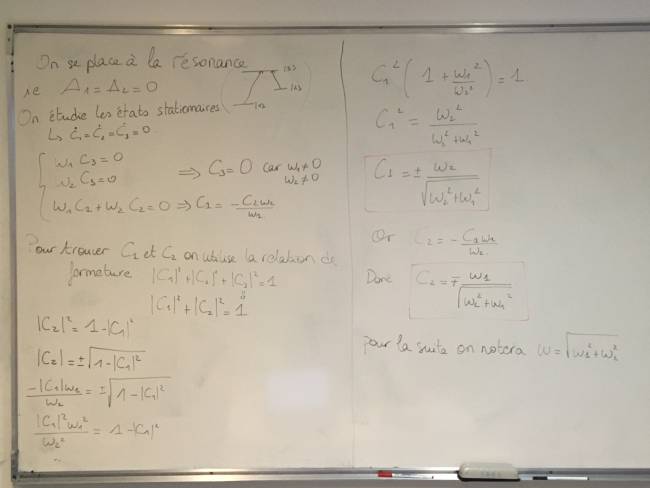 On se place à la résonance
ie Δ₁ = Δ₂ = 0
On étudie les états stationnaires
↳ Ċ₁ = Ċ₂ = Ċ₃ = 0
{ ω₁ C₃ = 0
ω₂ C₃ = 0
⇒ C₃ = 0 car ω₁ ≠ 0
ω₂ ≠ 0
ω₁ C₁ + ω₂ C₂ = 0 ⇒ C₁ = -C₂ω₂/ω₁
Pour trouver C₁ et C₂ on utilise la relation de
fermeture |C₁|² + |C₂|² + |C₃|² = 1
|C₁|² + |C₂|² = 1
|C₂|² = 1 - |C₁|²
|C₂| = ±√(1 - |C₁|²)
-|C₁|ω₁/ω₂ = ±√(1 - |C₁|²)
|C₁|²ω₁²/ω₂² = 1 - |C₁|²
C₁² (1 + ω₁²/ω₂²) = 1
C₁² = ω₂²/(ω₂² + ω₁²)
C₁ = ± ω₂/√(ω₂² + ω₁²)
Or C₂ = -C₁ω₁/ω₂
Donc C₂ = ∓ ω₁/√(ω₂² + ω₁²)
Pour la suite on notera ω = √(ω₁² + ω₂²)